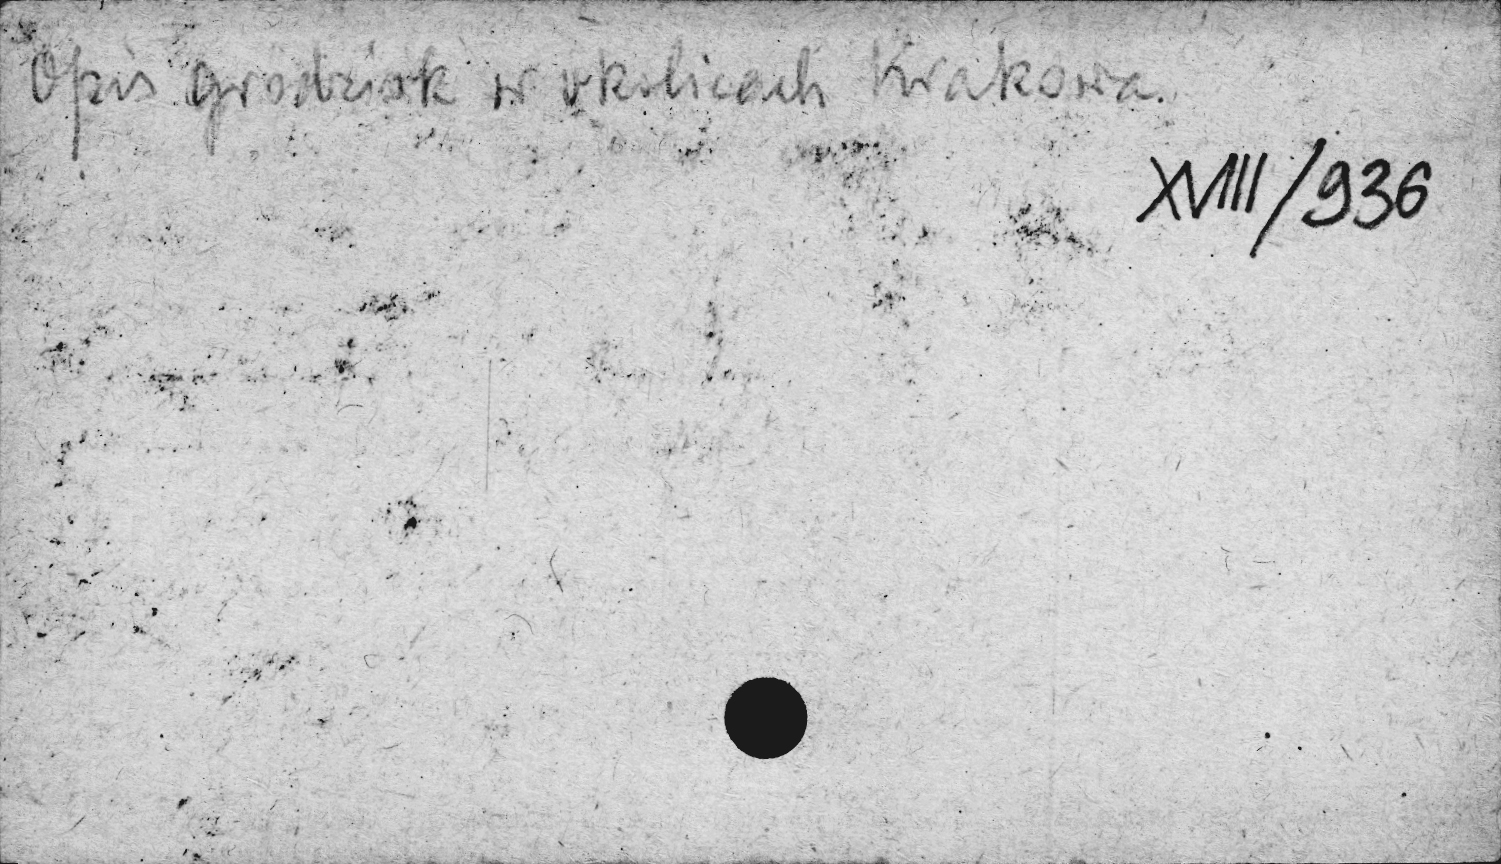 Opis grodzisk w okolicach Krakowa.
XVIII/936